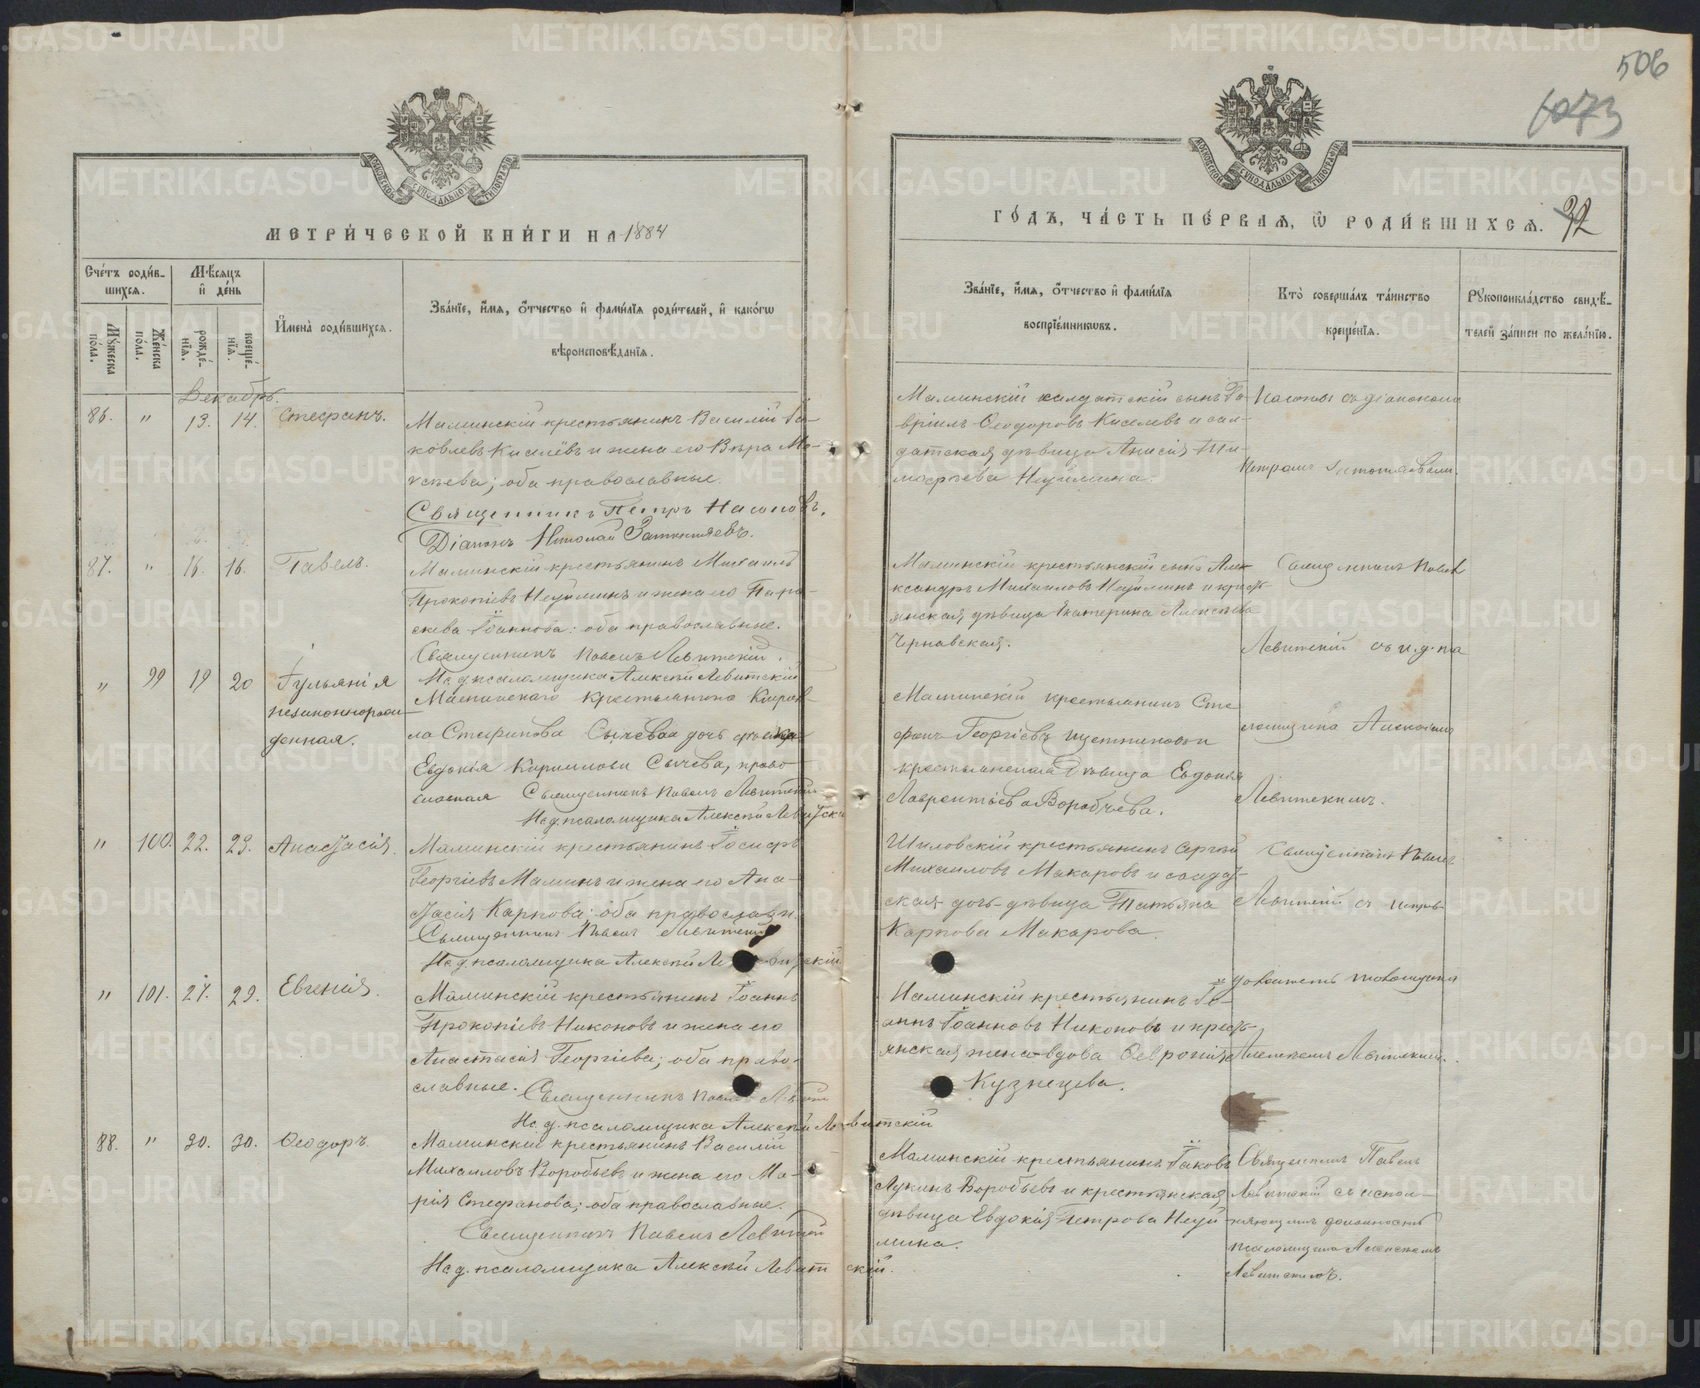 506
1073
МЕТРИ́ЧЕСКОЙ КНИ́ГИ НА 1884
ГО́ДЪ, ЧА́СТЬ ПЕ́РВАЯ, Ѿ РОДИ́ВШИХСЯ. 32
Сче́тъ роди́в-
шихся.
Мѣ́сяцъ
и҆ де́нь
Му́жеска
по́ла.
Же́нска
по́ла.
рожде́-
нїя.
креще́-
нїя.
И҆мена̀ роди́вшихся.
Зва́нїе, и҆́мя, ѻ҆́тчество и҆ фами́лїя роди́телей, и҆ како́гѡ
вѣроисповѣ́данїя.
Зва́нїе, и҆́мя, ѻ҆́тчество и҆ фами́лїя
воспрїе́мниковъ.
Кто̀ соверша́лъ та́инство
креще́нїя.
Рꙋкоприкла́дство свидѣ́-
телей за́писи по жела́нїю.
Декабрь.
86. " 13. 14. Стефанъ.
Маминскій крестьянинъ Василій Iа-
ковлевъ Киселёвъ и жена его Вѣра Мо-
исѣева; оба православные.
Священникъ Петръ Насоновъ.
Діаконъ Николай
Маминскій солдатскій сынъ Га-
вріилъ Ѳеодоровъ Киселевъ и сол-
датская дѣвица Анисія Ти-
моѳѣева Неуймина.
87. " 16. 16. Павелъ.
Маминскій крестьянинъ Михаилъ
Прокопіевъ Неуйминъ и жена его Пара-
скева Іоаннова: оба православные.
Священникъ Павелъ Левитскій.
И. д. псаломщика Алексѣй Левитскій
Маминскій крестьянскій сынъ Алек-
сандръ Михаиловъ Неуйминъ и кресть-
янская дѣвица Екатерина Алексѣева
Чернавская.
Священникъ Павелъ
Левитскій съ и. д. пса
ломщика Алексѣемъ
Левитскимъ.
" 99 19 20 Іульянія
незаконнорож-
денная.
Маминскаго крестьянина Кирил-
ла Стефанова Сычева дочь дѣвица
Евдокія Кириллова Сычева, право
славная Священникъ Павелъ Левитскій
И. д. псаломщика Алексѣй Левитскій
Маминскій крестьянинъ Сте
фанъ Георгіевъ Щетниковъ и
крестьянская дѣвица Евдокія
Лаврентіева Воробьева.
" 100. 22. 23. Анастасія.
Маминскій крестьянинъ Іосифъ
Георгіевъ Маминъ и жена его Ана-
стасія Карпова; оба православн.
Священникъ Павелъ Левитскій
И. д. псаломщика Алексѣй Левитскій
Шиловскій крестьянинъ Сергѣй
Михаиловъ Макаровъ и солдат-
ская дочь-дѣвица Татьяна
Карпова Макарова.
Священникъ Павелъ
Левитскій съ исправ.
должность псаломщика
Алексѣемъ Левитскимъ.
" 101. 27. 29. Евгенія.
Маминскій крестьянинъ Іоаннъ
Прокопіевъ Никоновъ и жена его
Анастасія Георгіева; оба право-
славные. Священникъ Павелъ Левит
И. д. псаломщика Алексѣй Левитскій
Маминскій крестьянинъ Іо-
аннъ Іоанновъ Никоновъ и кресть-
янская жена-вдова Ѳевронія
Кузнецова.
88. " 30. 30. Ѳеодоръ
Маминскій крестьянинъ Василій
Михаиловъ Воробьевъ и жена его Ма-
рія Стефанова; оба православные.
Священникъ Павелъ Левитскій
И. д. псаломщика Алексѣй Левитскій.
Маминскій крестьянинъ Іаковъ
Лукинъ Воробьевъ и крестьянская
дѣвица Евдокія Петрова Неуй-
мина.
Священникъ Павелъ
Левитскій съ испол-
няющимъ должность
псаломщика Алексѣемъ
Левитскимъ.